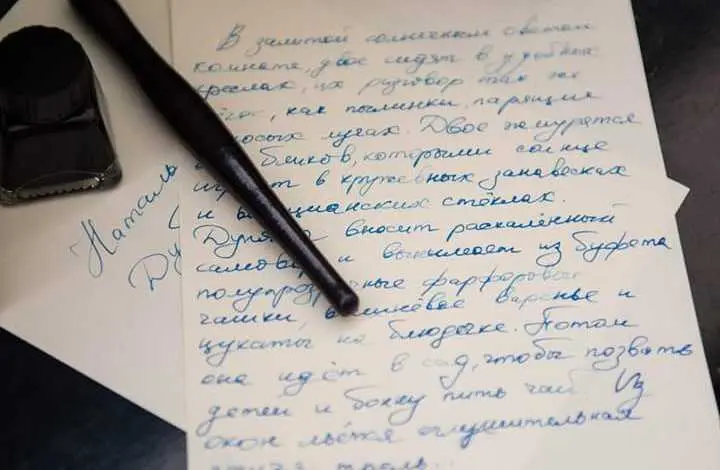 В залитой солнечным светом
комнате, двое сидят в удобных
креслах, их разговор так же
как пылинки, парящие
лучах. Двое жмурятся
бликов, которыми солнце
в кружевных занавесках
и стёклах.
вносит раскалённый
и вынимает из буфета
фарфоровые
чашки, варенье и
цукаты на блюдечке. Потом
она идёт в сад, чтобы позвать
детей и бонну пить чай. Из
окон льётся оглушительная
трель...
Наталь
Ду